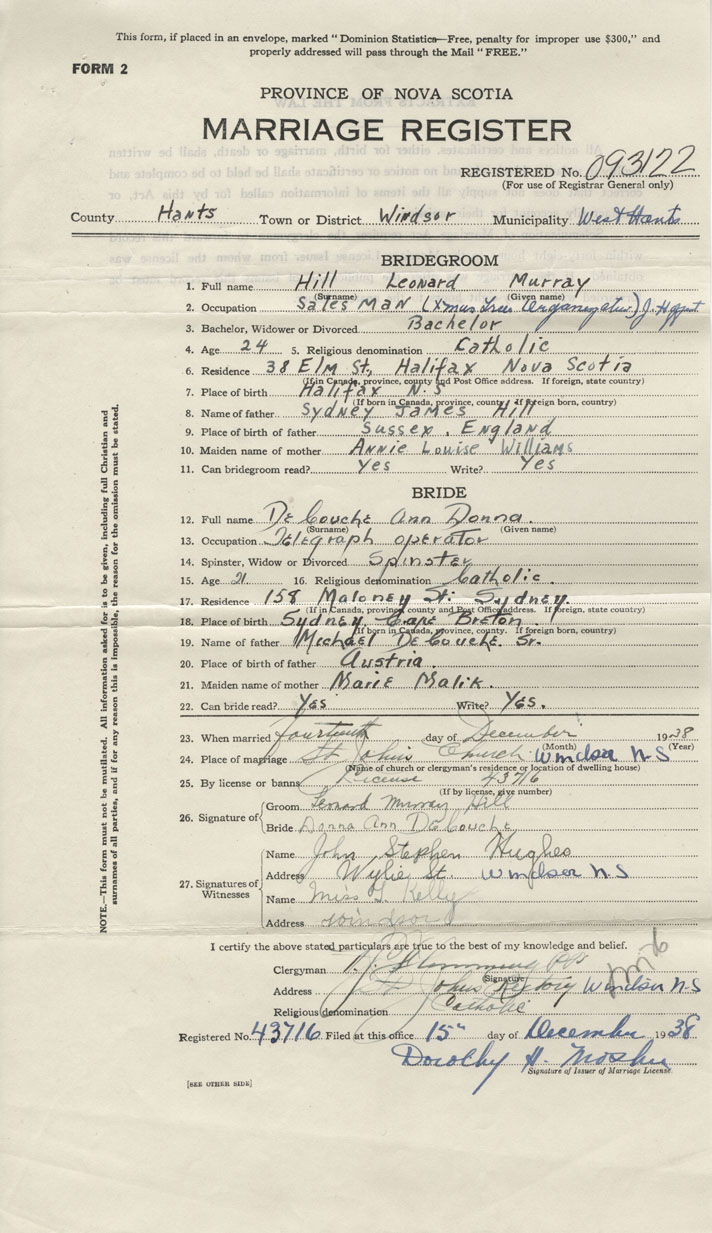 This form, if placed in an envelope, marked "Dominion Statistics—Free, penalty for improper use $300," and
properly addressed will pass through the Mail "FREE."
FORM 2
PROVINCE OF NOVA SCOTIA
MARRIAGE REGISTER
REGISTERED No. 093122
(For use of Registrar General only)
County Hants Town or District Windsor Municipality West Hants
BRIDEGROOM
1. Full name Hill Leonard Murray
(Surname) (Given name)
2. Occupation Sales Man (Xmas Tree Organization)
3. Bachelor, Widower or Divorced Bachelor
4. Age 24 5. Religious denomination Catholic
6. Residence 38 Elm St, Halifax Nova Scotia
(If in Canada, province, county and Post Office address. If foreign, state country)
7. Place of birth Halifax N.S
(If born in Canada, province, county. If foreign born, country)
8. Name of father Sydney James Hill
9. Place of birth of father Sussex, England
10. Maiden name of mother Annie Louise Williams
11. Can bridegroom read? Yes Write? Yes
BRIDE
12. Full name De Couche Ann Donna.
(Surname) (Given name)
13. Occupation Telegraph operator
14. Spinster, Widow or Divorced Spinster
15. Age 21 16. Religious denomination Catholic.
17. Residence 158 Maloney St. Sydney.
(If in Canada, province, county and Post Office address. If foreign, state country)
18. Place of birth Sydney Cape Breton.
(If born in Canada, province, county. If foreign born, country)
19. Name of father Michael De Couche Sr.
20. Place of birth of father Austria.
21. Maiden name of mother Marie Malik.
22. Can bride read? Yes Write? Yes.
23. When married fourteenth day of December 1938
(Month) (Year)
24. Place of marriage St Johns Church Windsor N S
(Name of church or clergyman's residence or location of dwelling house)
25. By license or banns License 43716
(If by license, give number)
26. Signature of Groom Leonard Murray Hill
Bride Donna Ann De Couche
27. Signatures of Witnesses
Name John Stephen Hughes
Address Wylie St. Windsor N.S
Name Miss Kelly
Address Windsor
I certify the above stated particulars are true to the best of my knowledge and belief.
Clergyman
(Signature)
Address St Johns Rectory Windsor N S
Religious denomination Catholic
Registered No. 43716 Filed at this office 15" day of December 1938
Dorothy H. Mosher
Signature of Issuer of Marriage License.
[SEE OTHER SIDE]
NOTE.—This form must not be mutilated. All information asked for is to be given, including full Christian and
surnames of all parties, and if for any reason this is impossible, the reason for the omission must be stated.